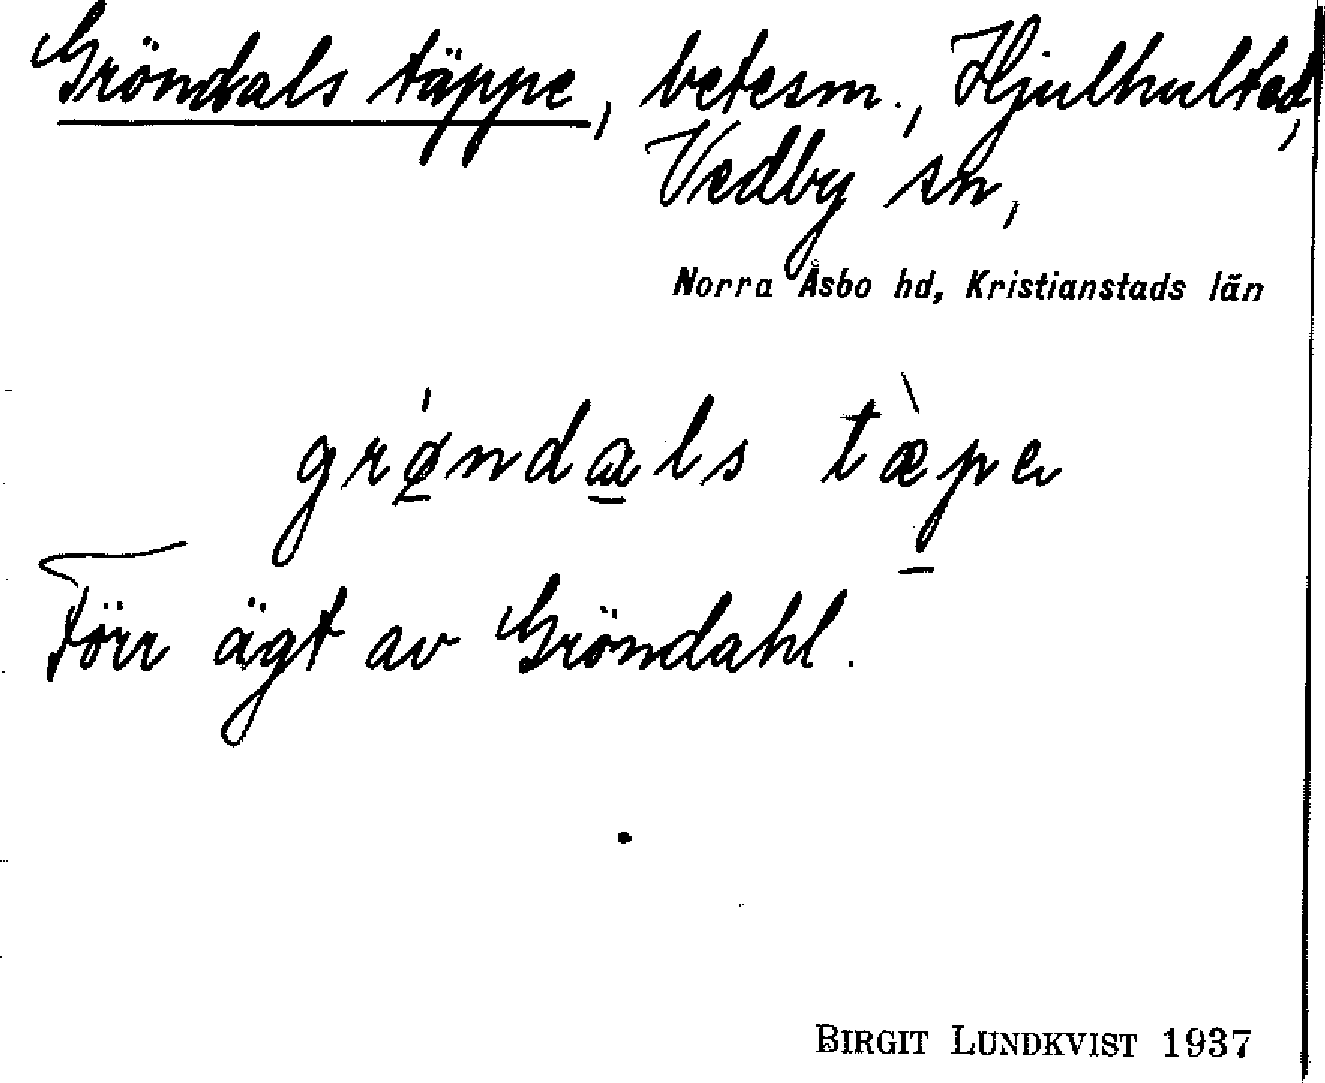 Gröndals täppe, betesm., Hjulhultad,
Vedby sn,
Norra Åsbo hd, Kristianstads län
grø̱nda̱ls tæp̱ə
Förr ägt av Gröndahl.
BIRGIT LUNDKVIST 1937